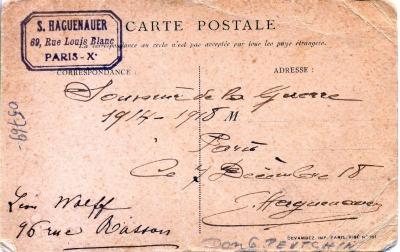 S. HAGUENAUER
69, Rue Louis Blanc
PARIS-X^e
CARTE POSTALE
La correspondance au recto n'est pas acceptée par tous les pays étrangers.
CORRESPONDANCE :
ADRESSE :
Souvenir de la Guerre
1914-1918 M
Paris
Ce 7 Décembre 18
S. Haguenauer
Léon Wolff
96 rue
DEVAMBEZ, IMP. PARIS.
DON G. DEUTSCH